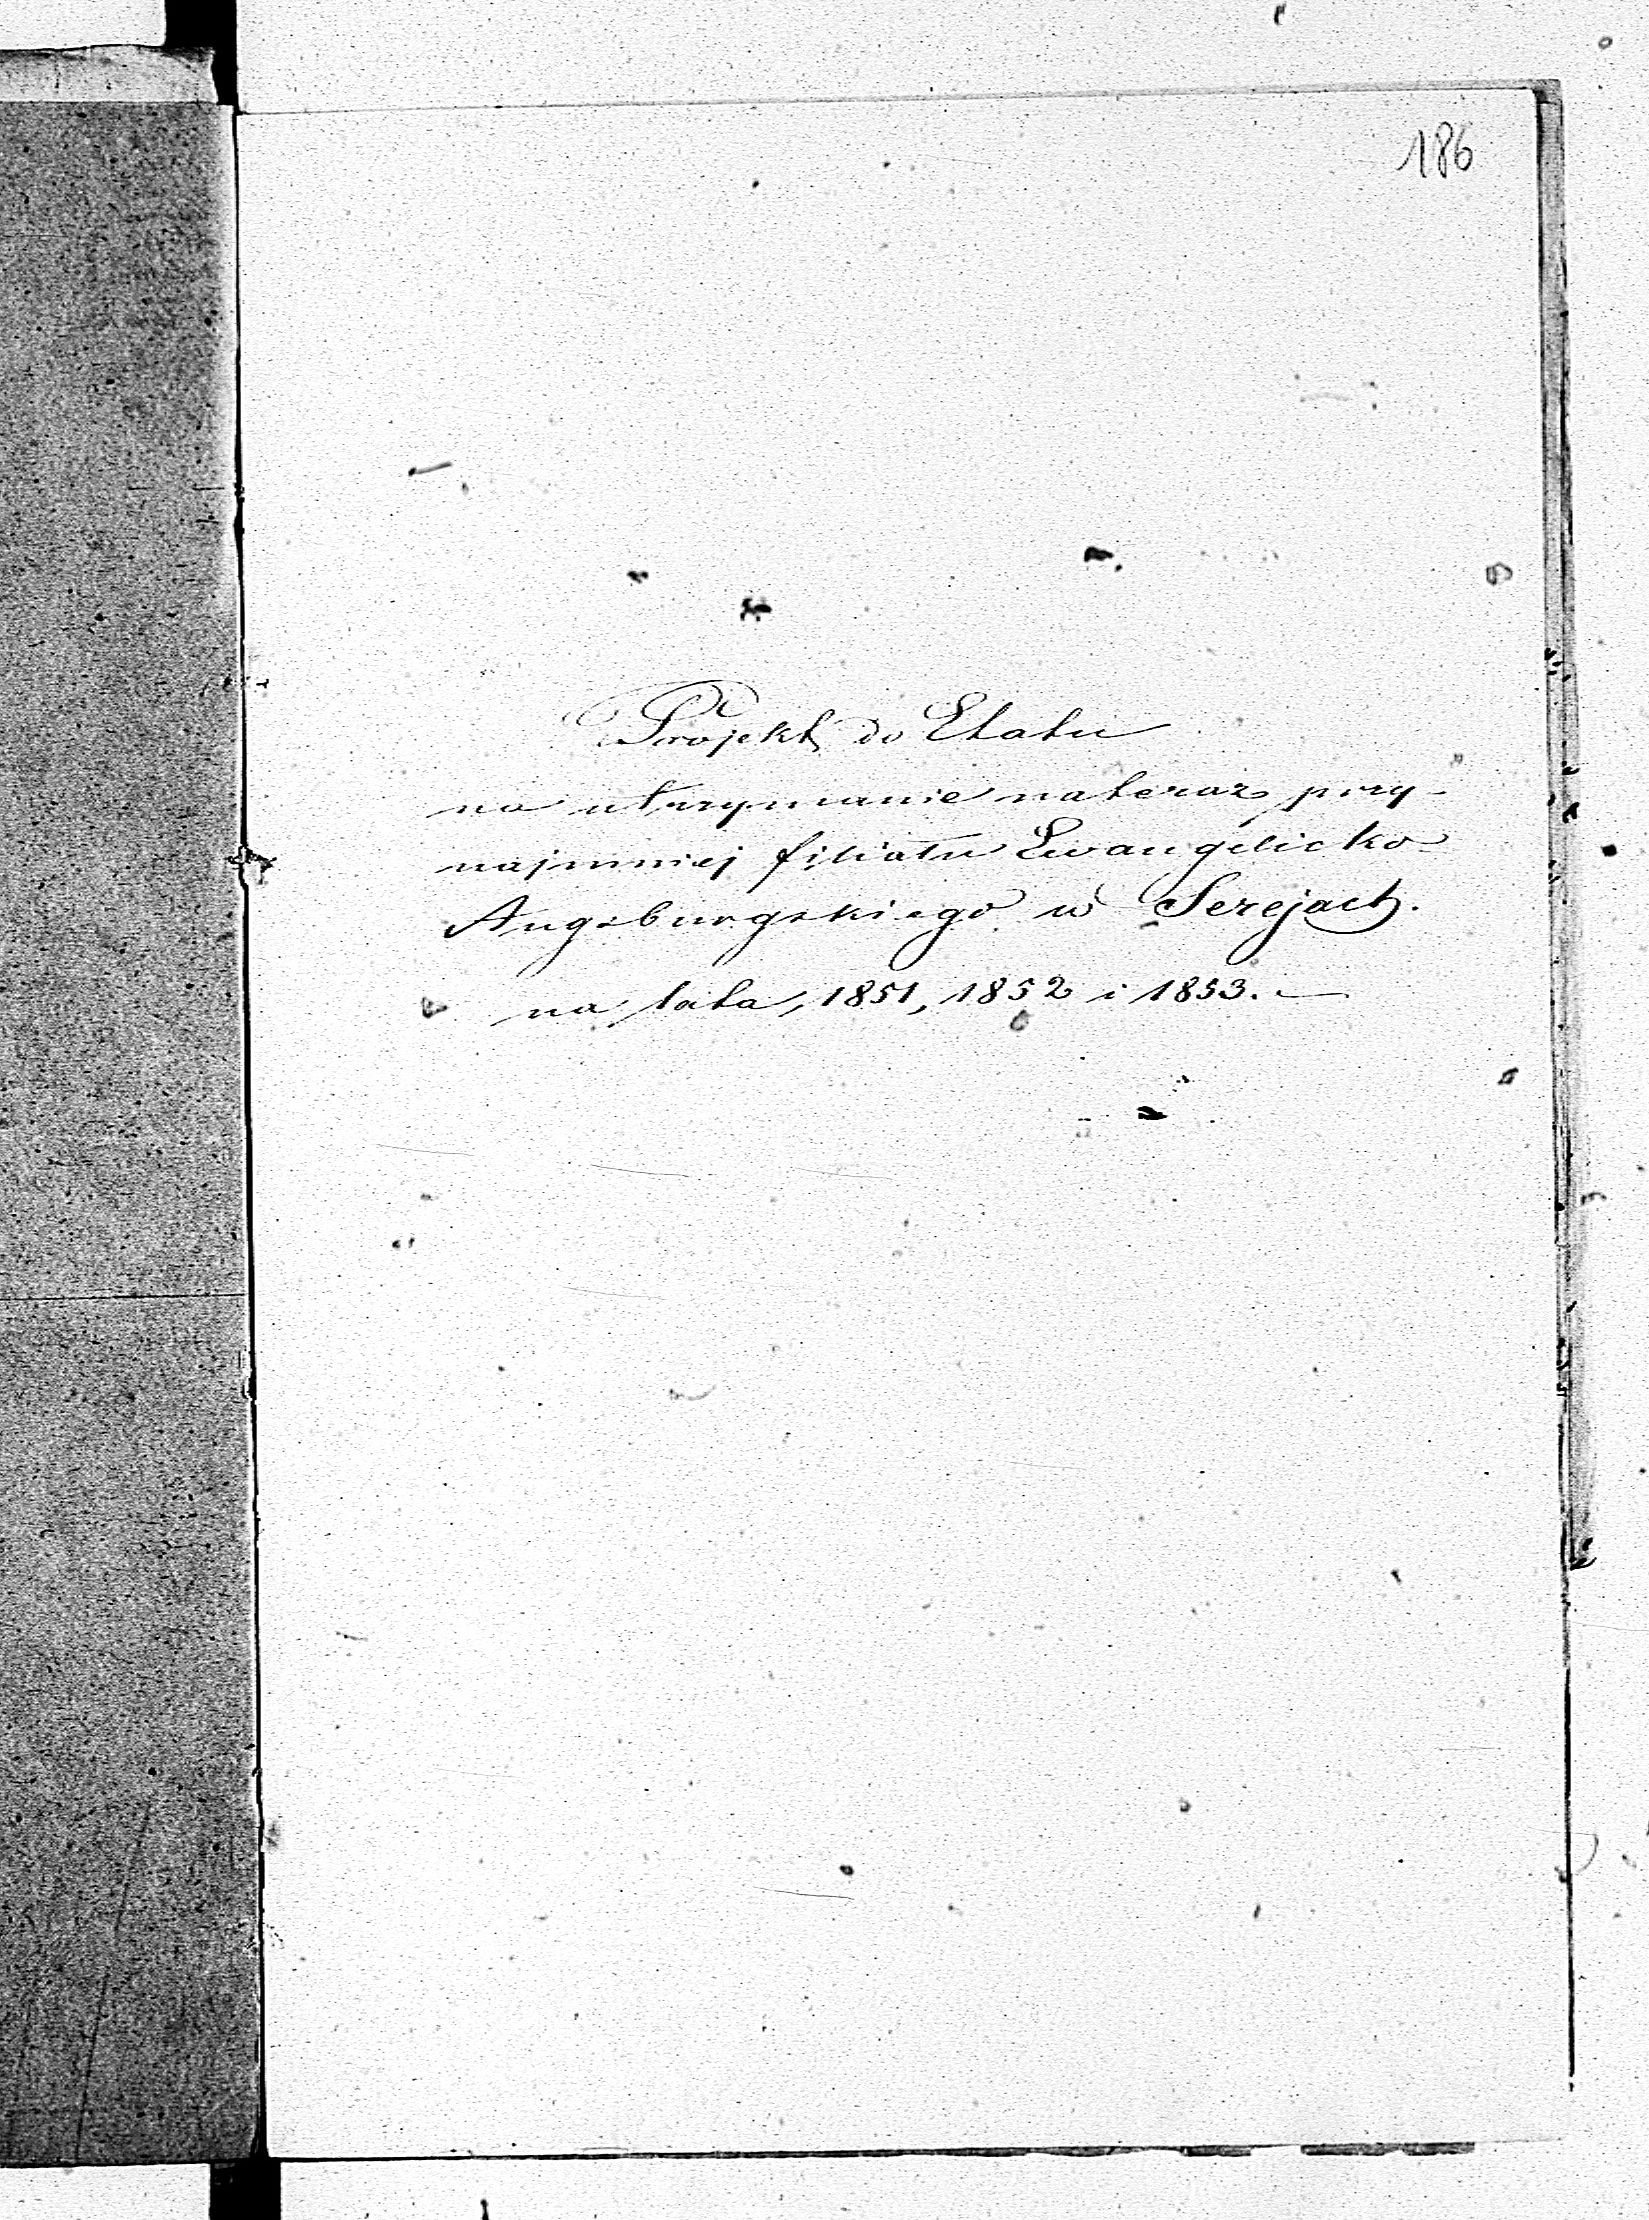 186
Projekt do Etatu
na utrzymanie nateraz przy-
najmniej filiału Ewangelicko
Augsburgskiego w Serejach.
na lata, 1851, 1852 i 1853. —